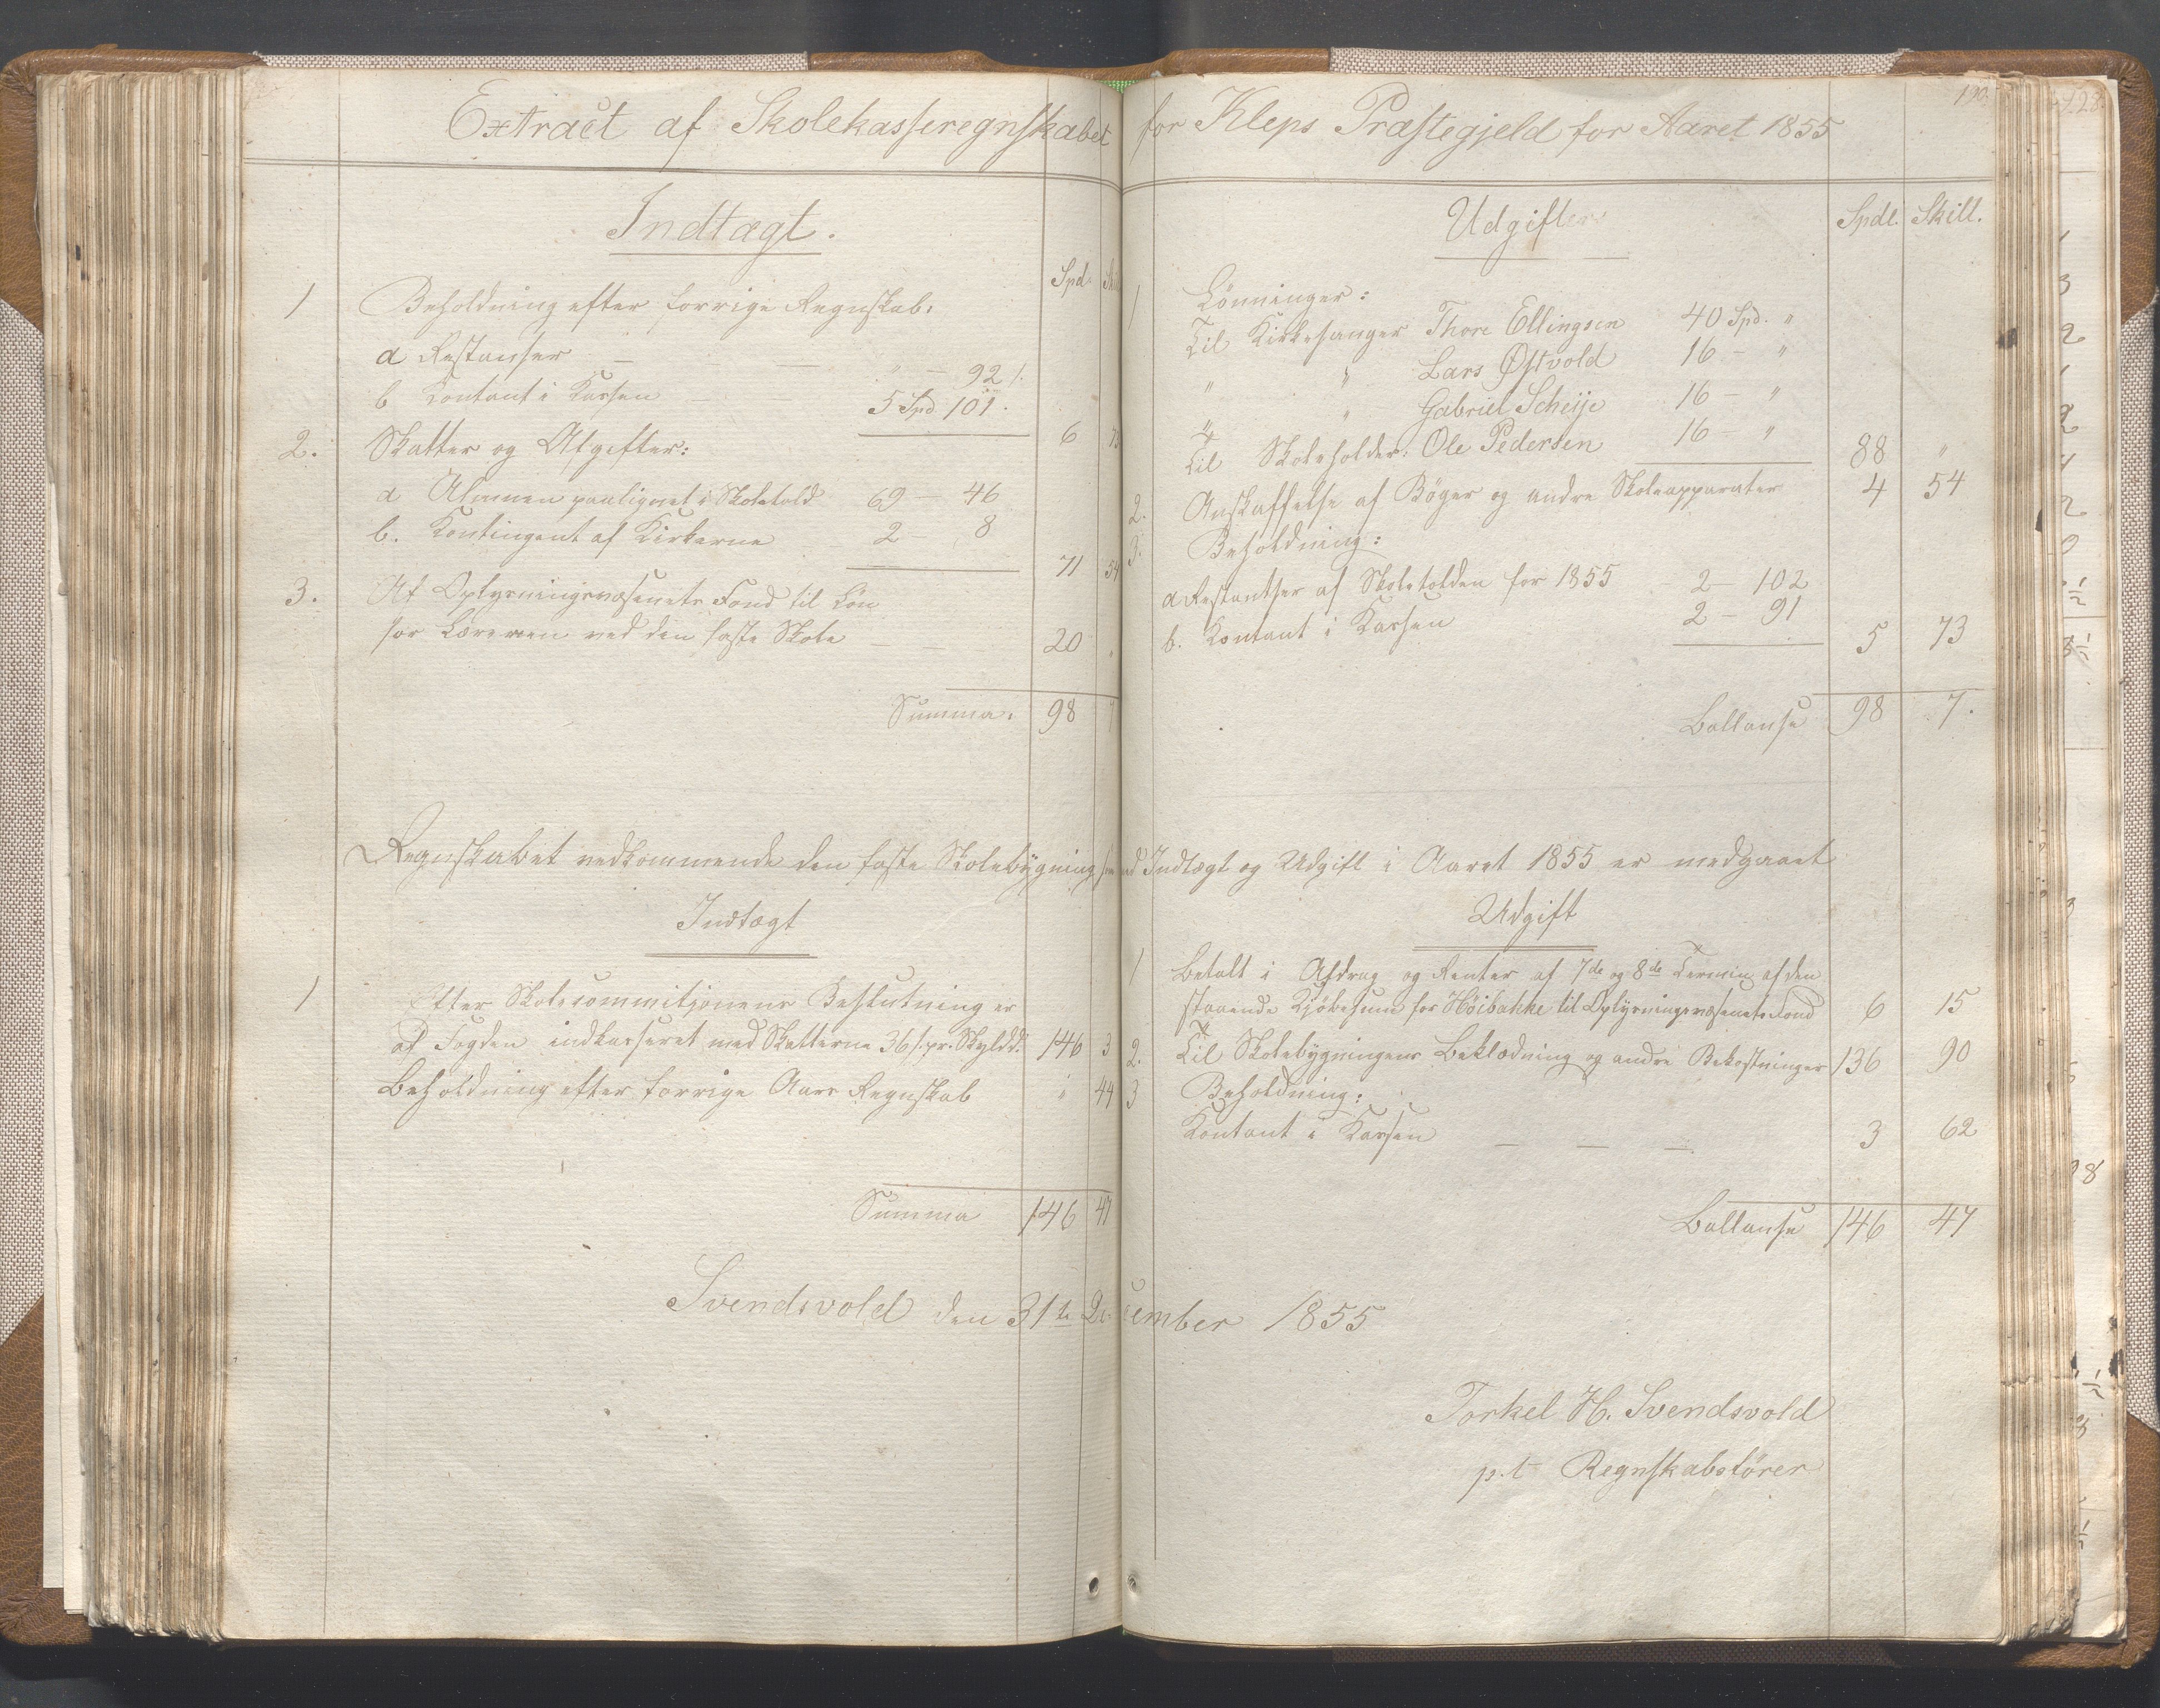 190.
Extract af Skolekasseregnskabet for Kleps Præstegjeld for Aaret 1855
Indtægt.
Spd. Skill
1 Beholdning efter forrige Regnskab:
a Restanser — — — " — 92 s.
b Kontant i Kassen — — 5 Spd 101.
6 73
2. Skatter og Afgifter:
a Almuen paalignet i Skoletold 69 — 46
b. Kontingent af Kirkerne — 2 — 8
71 54
3. Af Oplysningsvæsenets Fond til Løn
for Læreren ved den faste Skole — — 20 "
Summa. 98 7
Udgifter
Spdl. Skill.
1 Lønninger:
Til Kirkesanger Thore Ellingsen 40 Spd. "
" " Lars Østvold 16 — "
" " Gabriel Scheije 16 — "
Til Skoleholder: Ole Pedersen 16 — "
88 "
2. Anskaffelse af Bøger og andre Skoleapparater 4 54
3. Beholdning:
a Restantser af Skoletolden for 1855 2 — 102
b. Kontant i Kassen 2 — 91
5 73
Ballanse 98 7.
Regnskabet vedkommende den faste Skolebygning Indtægt og Udgift i Aaret 1855 er medgaaet
Indtægt
1 Efter Skolecommisjonens Beslutning er
af Fogden indkasseret med Skatterne 36 s. pr. Skyldd. 146 3
Beholdning efter forrige Aars Regnskab " 44
Summa 146 47
Udgift
1 Betalt i Afdrag og Renter af 7de og 8de Termin af den
staaende Kjøbesum for Høibakke til Oplysningsvæsenets Fond 6 15
2. Til Skolebygningens Beklædning og andre Bekostninger 136 90
3 Beholdning:
Kontant i Kassen — — — 3 62
Ballanse 146 47
Svendsvold den 31te December 1855
Torkel H. Svendsvold
p.t Regnskabsfører